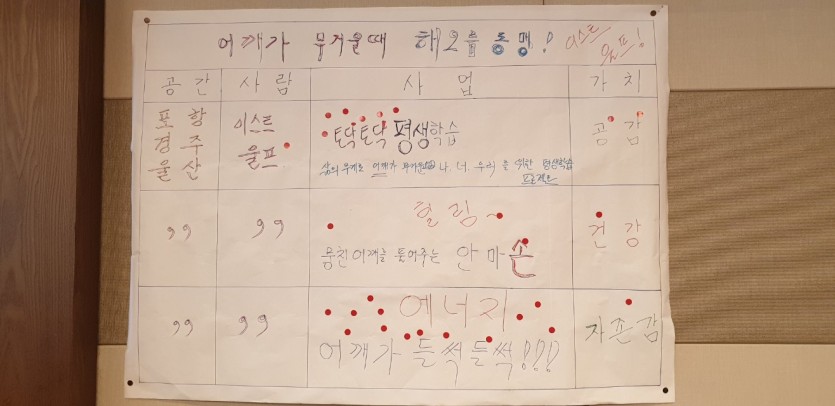 어깨가 무거울때 해오름동맹! 이스트 울프!
공간 사람 사업 가치
포항 경주 울산
이스트 울프
토닥토닥 평생학습
삶의 무게로 어깨가 무거운 나, 너, 우리 를 위한 평생학습
프로젝트
공감
" "
힐링~
뭉친어깨를 풀어주는 안마손
건강
" "
에너지
어깨가 들썩들썩!!!
자존감